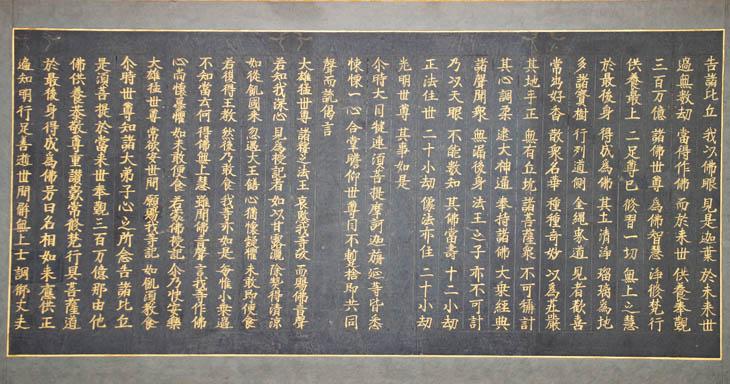 告諸比丘 我以佛眼 見是迦葉 於未來世
過無數劫 當得作佛 而於来世 供養奉覲
三百万億 諸佛世尊 為佛智慧 淨修梵行
供養最上 二足尊已 修習一切 無上之慧
於最後身 得成為佛 其土清淨 瑠璃為地
多諸寶樹 行列道側 金繩界道 見者歡喜
常出好香 散衆名華 種種奇妙 以為莊嚴
其地平正 無有丘坑 諸菩薩衆 不可稱計
其心調柔 逮大神通 奉持諸佛 大乗經典
諸聲聞衆 無漏後身 法王之子 亦不可計
乃以天眼 不能數知 其佛當壽 十二小劫
正法住世 二十小劫 像法亦住 二十小劫
光明世尊 其事如是
尒時大目揵連須菩提摩訶迦旃延等皆悉
悚慄一心合掌瞻仰世尊目不暫捨即共同
聲而説偈言
大雄猛世尊 諸釋之法王 哀愍我等故 而賜佛音聲
若知我深心 見為授記者 如以甘露灑 除熱得清涼
如從飢國来 忽遇大王饍 心猶懷疑懼 未敢即便食
若復得王教 然後乃敢食 我等亦如是 每惟小乗過
不知當云何 得佛無上慧 雖聞佛音聲 言我等作佛
心尚懷憂懼 如未敢便食 若蒙佛授記 尒乃快安樂
大雄猛世尊 常欲安世間 願賜我等記 如飢須教食
尒時世尊知諸大弟子心之所念告諸比丘
是須菩提於當来世奉覲三百万億那由他
佛供養恭敬尊重讚歎常修梵行具菩薩道
於最後身得成為佛号曰名相如来應供正
遍知明行足善逝世間解無上士調御丈夫